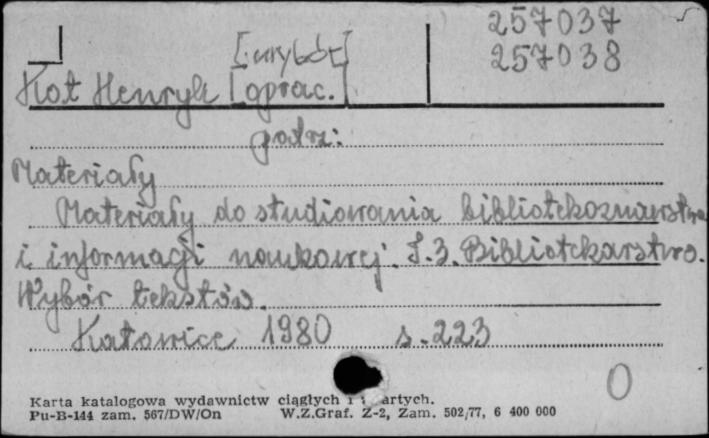 257037
[: wybór]
257038
Kot Henryk [oprac.]
patrz:
Materiały
Materiały do studiowania bibliotekoznawstwa
i informacji naukowej. T.3. Bibliotekarstwo.
Wybór tekstów.
Katowice 1980 s. 223
0
Karta katalogowa wydawnictw ciągłych i artych.
Pu-B-144 zam. 567/DW/On W.Z.Graf. Z-2, Zam. 502/77, 6 400 000